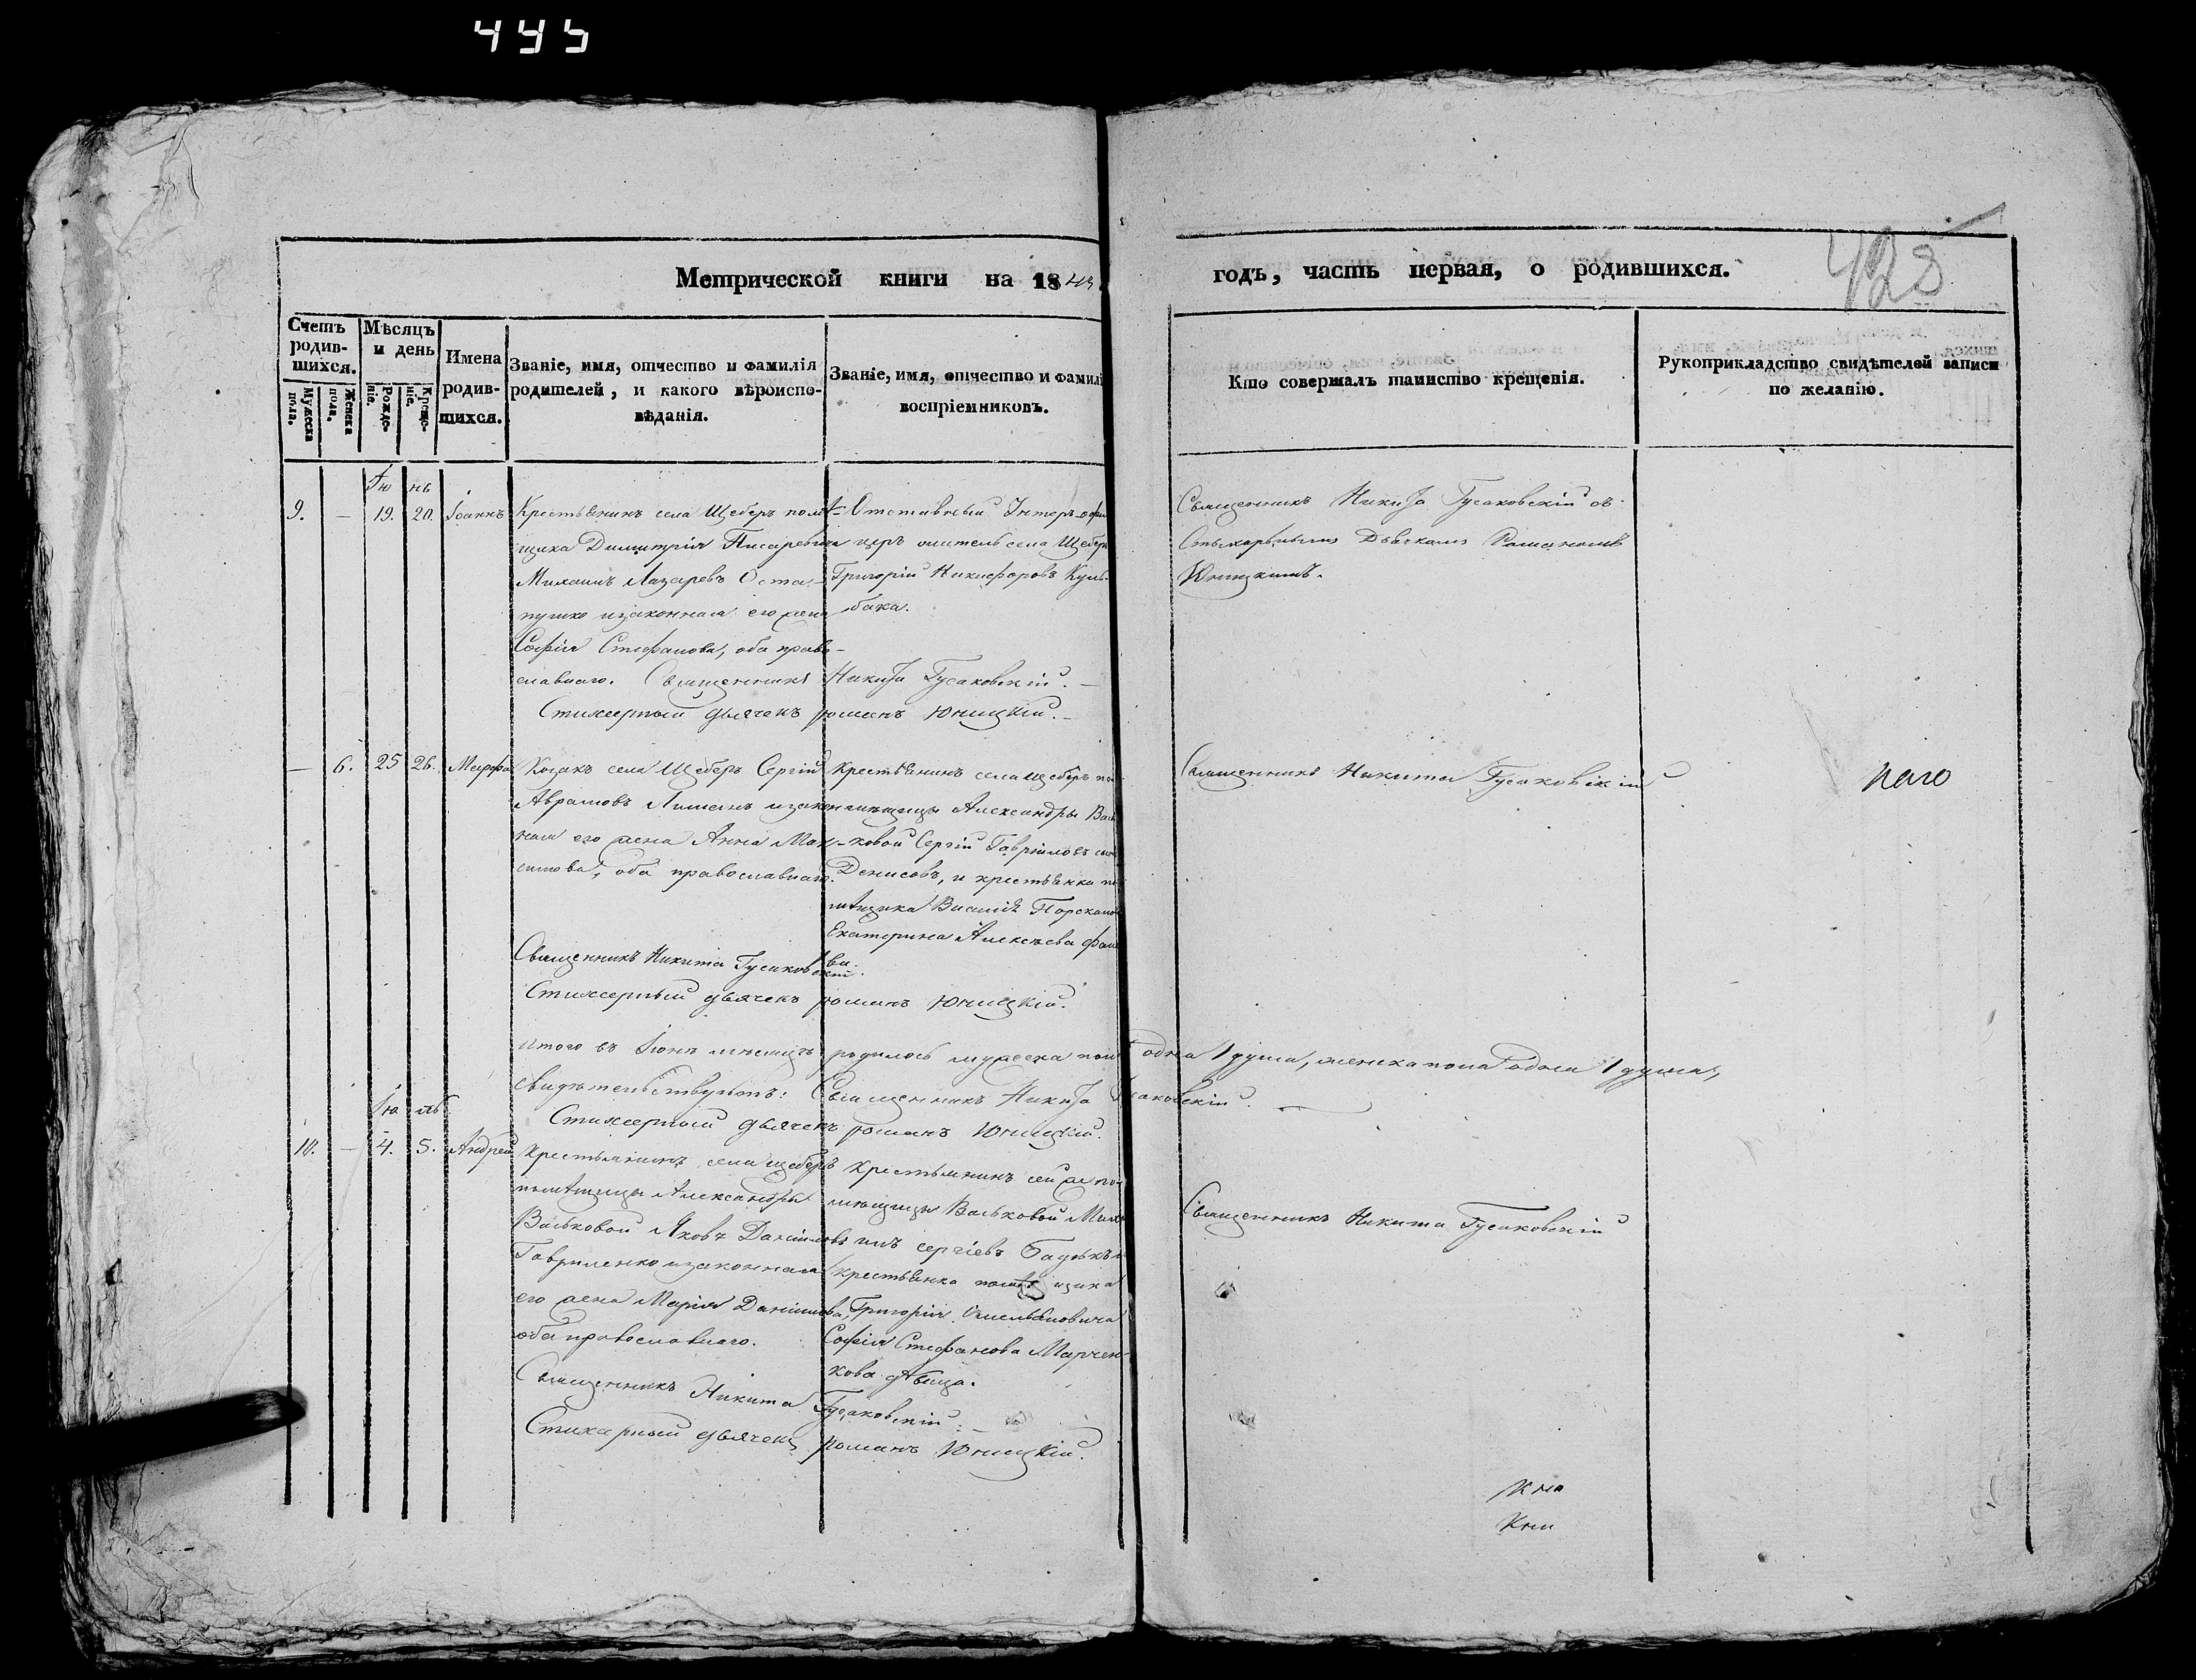 445
Метрической книги на 1843
годъ, часть первая, о родившихся.
425
Счетъ родив-шихся.
Мужеска пола.
Женска пола.
Мѣсяцъ и день
Рожде-нія.
Креще-нія.
Имена родив-шихся.
Званіе, имя, отчество и фамилія родителей, и какого вѣроиспо-вѣданія.
Званіе, имя, отчество и фамилі воспріемниковъ.
Кто совершалъ таинство крещенія.
Рукоприкладство свидѣтелей записи по желанію.
Іюнь
9. — 19. 20. Іоаннъ
Крестьянинъ села Щебръ помѣ-
щика Димитрія Писаревича
Михаилъ Лазаревъ Оста-
пушко и законная его жена
Софія Стефанова, оба право-
славнаго.
Отставный Унтеръ-офи
церъ житель села Щебръ
Григорій Никифоровъ Куль-
бака.
Священникъ Никита Гусаковскій.
Стихерный дьячекъ Романъ Юницкій.
Священникъ Никита Гусаковскій съ
Стихарнымъ Дьячкомъ Романомъ
Юницкимъ.
— 6. 25 26. Марфа
Козакъ села Щебръ Сергій
Аврамовъ Лиманъ и закон
ная его жена Анна Мак-
симова, оба православнаго.
Крестьянинъ села Щебръ по-
мѣщицы Александры Вась
ковой Сергій Гавріиловъ сынъ
Денисовъ, и крестьянка по
мѣщика Василія
Екатерина Алексѣева
Священникъ Никита Гусаковскій.
Стихерный дьячекъ Романъ Юницкій.
Священникъ Никита Гусаковскій
Итого въ Іюнѣ мѣсяцѣ родилось мужеска пола одна 1 душа, женска пола одна 1 душа,
свидѣтельствуютъ: Священникъ Никита Гусаковскій.
Стихерный дьячекъ Романъ Юницкій.
Іюль
10. — 4. 5. Андрей
Крестьянинъ села Щебръ
помѣщицы Александры
Васьковой Яковъ Даніиловъ
Гавриленко и законная
его жена Марія Даніилова,
оба православнаго.
Крестьянинъ сей же по-
мѣщицы Васьковой Миха
илъ Сергіевъ
крестьянка помѣщика
Григорія Омельяновича
Софія Стефанова Марчен-
кова дѣвица.
Священникъ Никита Гусаковскій.
Стихарный дьячекъ Романъ Юницкій.
Священникъ Никита Гусаковскій